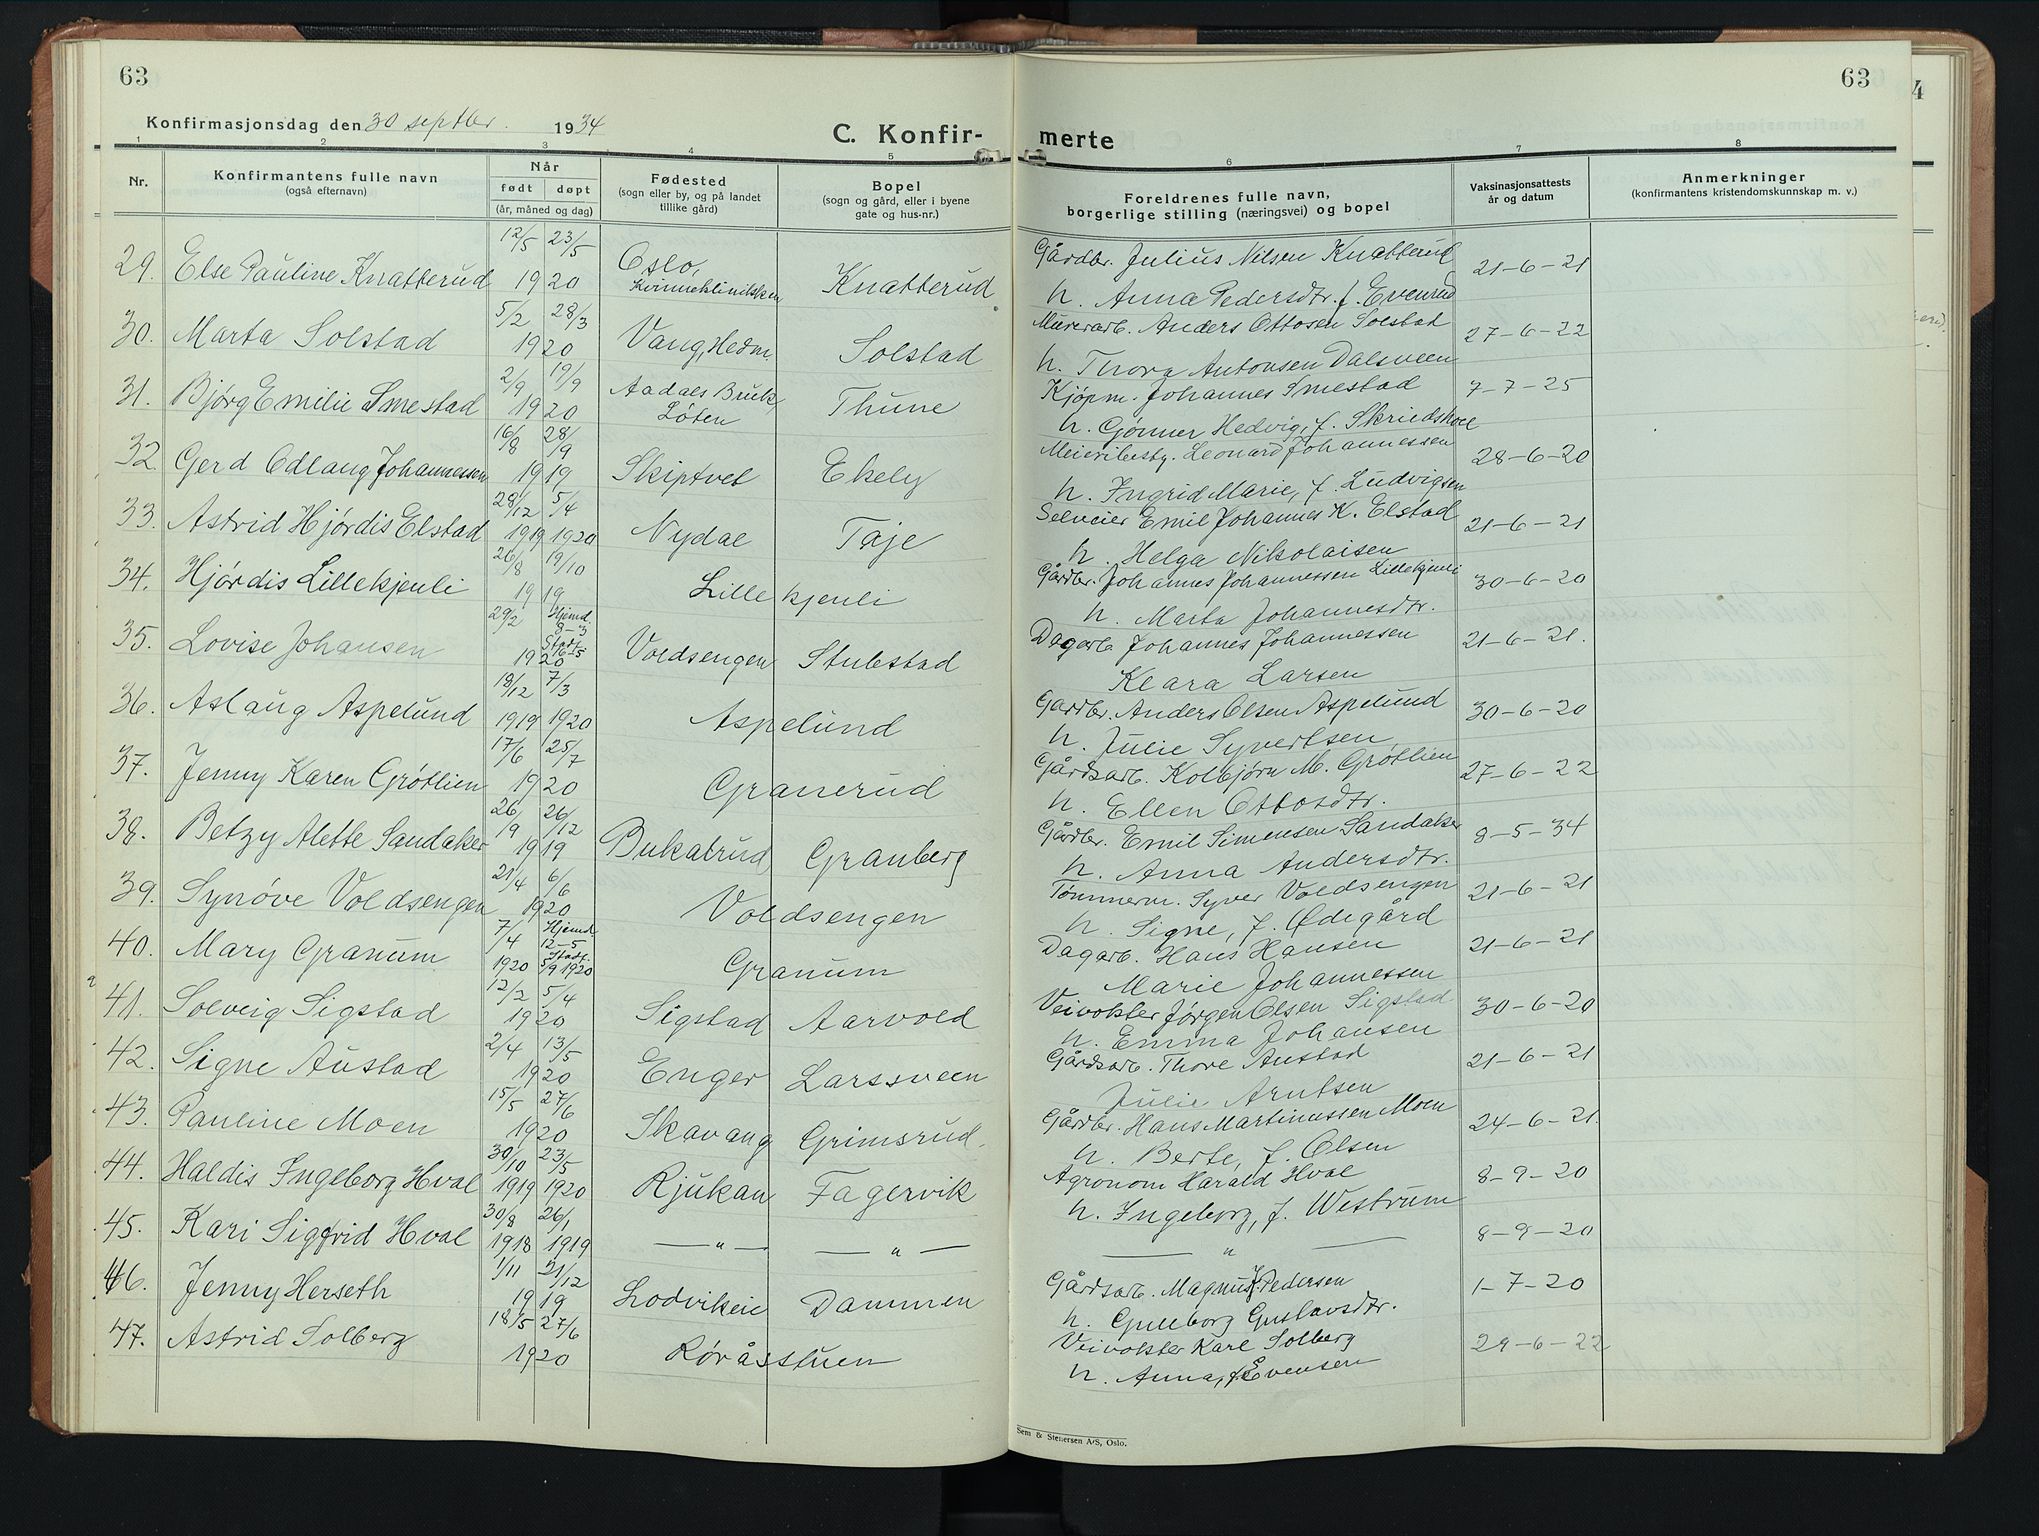 63
63
Konfirmasjonsdag den 30 septbr. 1934
C. Konfir-
merte
1 2 3 4 5 6 7 8
Nr.
Konfirmantens fulle navn
(også efternavn)
Når
født døpt
(år, måned og dag)
Fødested
(sogn eller by, og på landet
tillike gård)
Bopel
(sogn og gård, eller i byene
gate og hus-nr.)
Foreldrenes fulle navn,
borgerlige stilling (næringsvei) og bopel
Vaksinasjonsattests
år og datum
Anmerkninger
(konfirmantens kristendomskunnskap m. v.)
12/5 23/5 Oslo, Gårdbr. Julius Nilsen Knatterud
29. Else Pauline Knatterud 1920 Kvinneklinikken Knatterud 21-6-21
h. Anna Pedersdtr. f. Evenrud
5/2 28/3 Murerarb. Anders Ottosen Solstad
30. Marta Solstad 1920 Vang, Hedm. Solstad 27-6-22
h. Thora Antonsen Dalsveen
2/9 19/9 Aadals Bruk, Kjøpm. Johannes Smestad
31. Bjørg Emilie Smestad 1920 Løten Thune 7-7-25
h. Gønner Hedvig, f.
16/8 28/9 Meieribesty. Leonard Johannessen
32. Gerd Odlaug Johannessen 1919 Skiptvet Ekely 28-6-20
h. Ingrid Marie, f. Ludvigsen
28/12 5/4 Selveier Emil Johannes K. Elstad
33. Astrid Hjørdis Elstad 1919 1920 Nydal Taje 21-6-21
h. Helga Nikolaisen
26/8 19/10 Gårdbr. Johannes Johannessen Lillekjenli
34. Hjørdis Lillekjenli 1919 Lillekjenli 30-6-20
h. Marta Johannesdtr.
29/2 Hjemd. 8-3 Dagarb. Johannes Johannessen
35. Lovise Johansen 1920 Stadf. 16-5 Voldsengen Stubstad 21-6-21.
Klara Larsen
18/12 7/3 Gårdbr. Anders Olsen Aspelund
36. Aslaug Aspelund 1919 1920 Aspelund 30-6-20
h. Julie Syvertsen
17/6 25/7 Gårdsarb. Kolbjørn M. Grøtlien
37. Jenny Karen Grøtlien 1920 Granerud 27-6-22
h. Ellen Ottosdtr.
26/19 26/12 Gårdbr. Emil Simensen Sandaker
38. Betzy Alette Sandaker 1919 Bukatrud Granberg 8-5-34
h. Anna Andersdtr.
21/4 6/6 Tømmerm. Syver Voldsengen
39. Synøve Voldsengen 1920 Voldsengen 21-6-21
h. Signe, f. Ødegård
7/4 Hjemd. 12-5 Dagarb. Hans Hansen
40. Mary Granum 1920 Stadf. 5/9 1920 Granum 21-6-21
Marie Johannessen
12/2 5/4 Veivokter Jørgen Olsen Sigstad
41. Solveig Sigstad 1920 Sigstad Aarvold 30-6-20
h. Emma Johansen
2/4 13/5 Gårdsarb. Thore Austad
42. Signe Austad 1920 Enger Larssveen 21-6-21
Julie Arntsen
15/5 27/6 Gårdbr. Hans Martinussen Moen
43. Pauline Moen 1920 Skavang Grimsrud. 24-6-21.
h. Berte, f. Olsen
30/10 23/5 Agronom Harald Hval
44. Haldis Ingeborg Hval 1919 1920 Rjukan Fagervik 8-9-20
h. Ingeborg, f. Westrum
30/8 26/1
45. Kari Sigfrid Hval 1918 1919 — " — — " — — " — 8-9-20
1/11 21/12 Gårdsarb. Magnus J. Pedersen
46. Jenny Herseth 1919 Lodvikeie Dammen 1-7-20
h. Gulborg Gustavsdtr.
18/5 27/6 Veivokter Karl Solberg
47. Astrid Solberg 1920 Røråsstuen 29-6-22
h. Anna, f. Evensen
Sem & Stenersen A/S, Oslo.